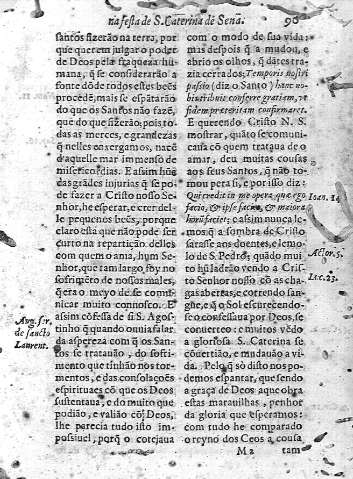 na festa de S. Caterina de Sena. 96
santos fizerão na terra, por
que querem julgar o poder
de Deos pela fraqueza huma-
na, q̃ se considerarão a
fonte dõde rodos estes bẽes
procedẽ, mais se espãtarão
do que os Santos não fazẽ,
que do que fizerão; pois to-
das as merces, e grandezas
q̃ nelles enxergamos, nacẽ
d'aquelle mar immenso de
misericordias. E assim hũa
das grãdes injurias q̃ se po-
de fazer a Cristo nosso Se-
nhor, he esperar, e crer del-
le pequenos bẽes, porque
claro esta que não pode ser
curto na repartição delles
com quem o ama, hum Se-
nhor, que tam largo foy no
sofrimẽto de nossos males,
q̃ era o meyo de se comu-
nicar muito connosco. E
assim cõfessa de si S. Agos-
tinho q̃ quando ouvia falar
da aspereza com q̃ os San-
tos se tratauão, do sofri-
mento que tinhão nos tor-
mentos, e das consolações
espirituaes cõ que os Deus
sustentaua, e do muito que
podião, e valião cõ Deos,
lhe perecia tudo isto im-
possiuel, porq̃ o cotejaua
Aug. ser.
de sancto
Laurent.
com o modo de sua vida:
mas despois q̃ a mudou, e
abrio os olhos, q̃ dãtes tra-
zia cerrados; Temporis nostri
passio (diz o Santo) hanc no-
bis tribuit conferre gratiam, ut
fidem præteritam confirmaret.
E querendo Cristo N. S.
mostrar, quãto se comuni-
caua cõ quem tratqua de o
amar, deu muitas cousas
aos seus Santos, q̃ não to-
mou pera si, e por isso diz:
Qui credit in me opera, quæ ego
facio, & ipse faciet, & maiora
horũ faciet: e assim nunca le-
mos q̃ a sombra de Cristo
sarasse aos doentes, e lemo-
lo de S. Pedro; quãdo mui-
to hũ ladrão vendo a Cris-
to Senhor nosso cõ as cha-
gas abertas, e correndo san-
gue, e q̃ o Sol escurecendo-
se o confessaua por Deos, se
conuerteo: e muitos vẽdo
a gloriosa S. Caterina se
cõuertião, e mudauão a vi-
da. Pelo q̃ sò disto nos po-
demos espantar, que sendo
a graça de Deos aque obra
estas marauilhas, penhor
da gloria que esperamos:
com tudo he comparado
o reyno dos Ceos a cousa
Ioan. 14
Actor. 5.
Luc. 23.
M 2 tam